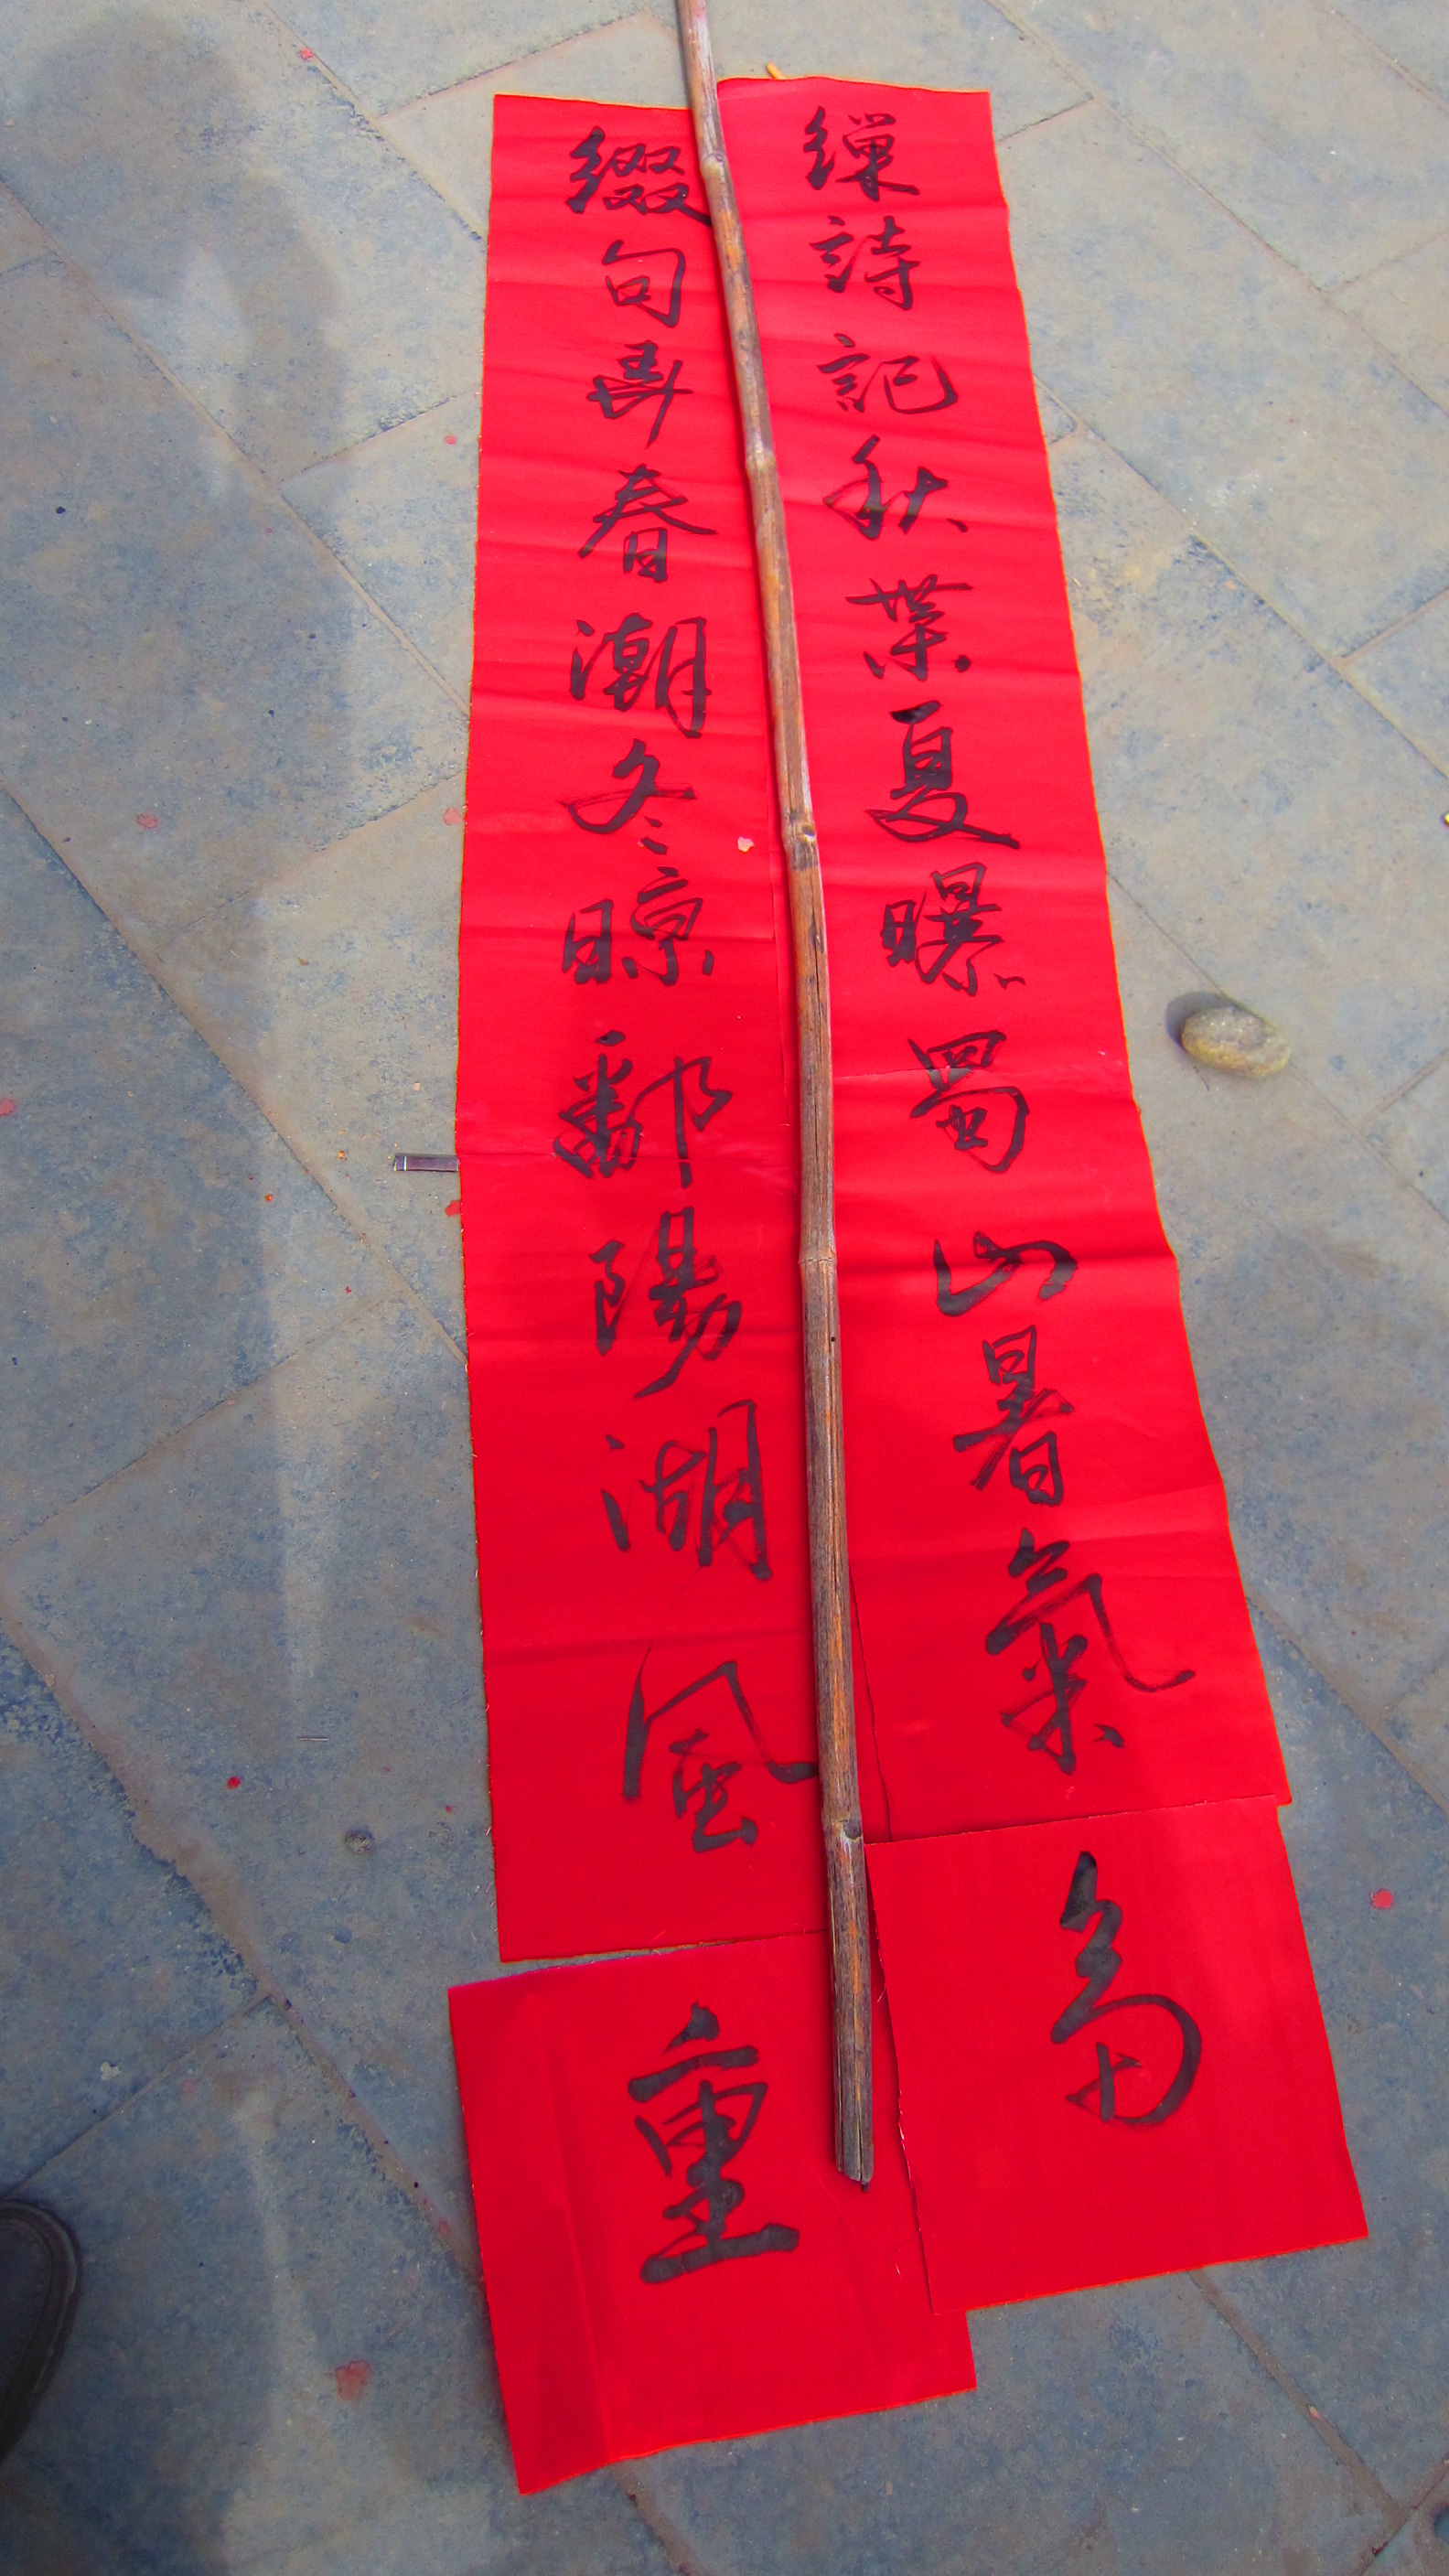 繅詩記秋葉夏曝蜀山暑氣多
綴句弄春潮冬晾鄱陽湖風重